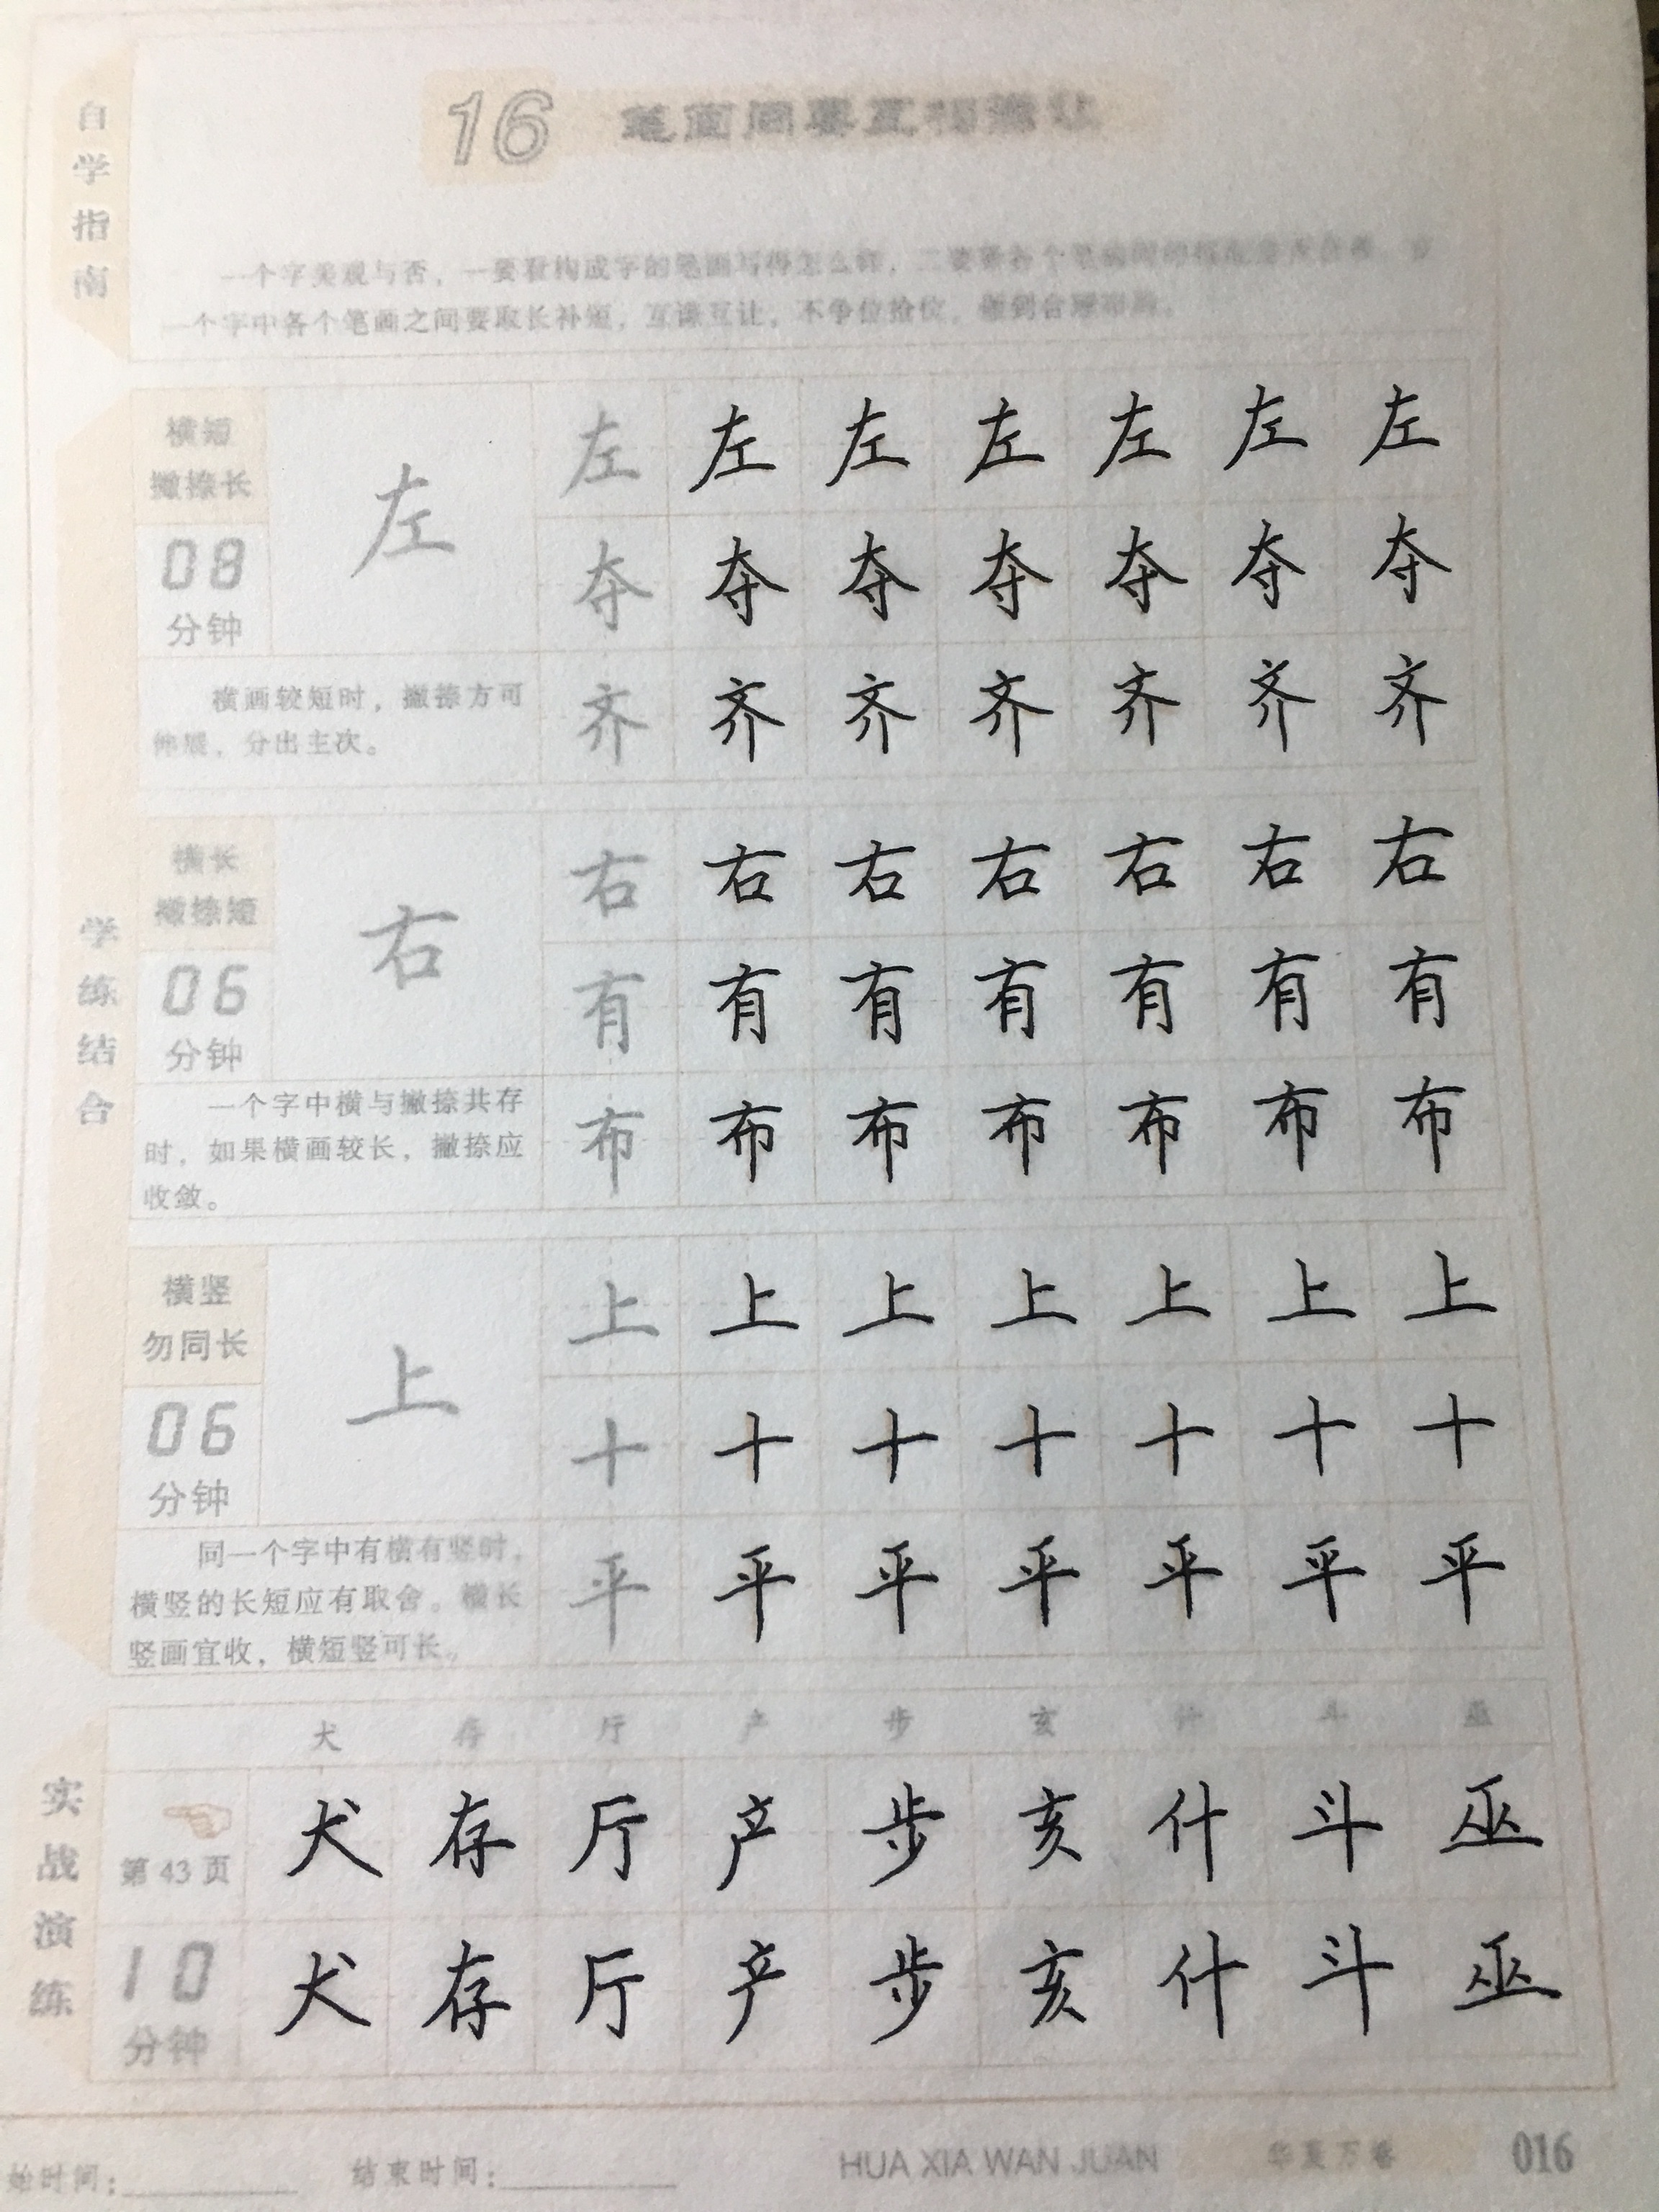 自学指南
16 笔画间要互相谦让
一个字美观与否，一要看构成字的笔画写得怎么样，二要看各个笔画间的
一个字中各个笔画之间要取长补短，互谦互让，不争位抢位，做到合理布局。
学练结合
横短
撇捺长
08
分钟
横画较短时，撇捺方可
伸展，分出主次。
左
左 左 左 左 左 左 左
夺 夺 夺 夺 夺 夺 夺
齐 齐 齐 齐 齐 齐 齐
横长
撇捺短
06
分钟
一个字中横与撇捺共存
时，如果横画较长，撇捺应
收敛。
右
右 右 右 右 右 右 右
有 有 有 有 有 有 有
布 布 布 布 布 布 布
横竖
勿同长
06
分钟
同一个字中有横有竖时，
横竖的长短应有取舍。横长
竖画宜收，横短竖可长。
上
上 上 上 上 上 上 上
十 十 十 十 十 十 十
平 平 平 平 平 平 平
实战演练
第 43 页
10
分钟
犬 存 厅 产 步 亥 什 斗 巫
犬 存 厅 产 步 亥 什 斗 巫
犬 存 厅 产 步 亥 什 斗 巫
始时间： 结束时间： HUA XIA WAN JUAN 华夏万卷 016